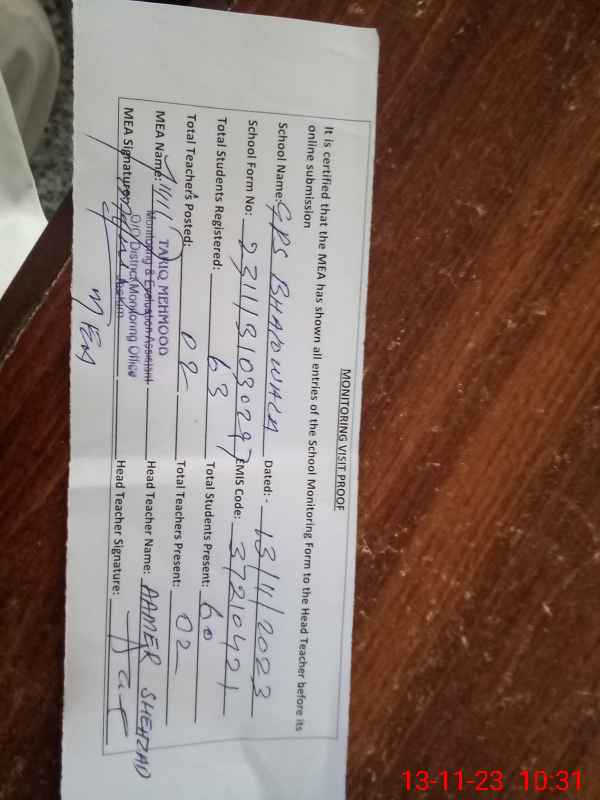 MONITORING VISIT PROOF
It is certified that the MEA has shown all entries of the School Monitoring Form to the Head Teacher before its
online submission
School Name: GPS BHALOWALA Dated:- 13/11/2023
School Form No: 2311131030297 EMIS Code: 37210421
Total Students Registered: 63 Total Students Present: 60
Total Teachers Posted: 02 Total Teachers Present: 02
MEA Name: TARIQ MEHMOOD Head Teacher Name: AAMER SHEHZAD
Monitoring & Evaluation Assistant
O/O District Monitoring Office
MEA Signature: Head Teacher Signature:
MEA
13-11-23 10:31